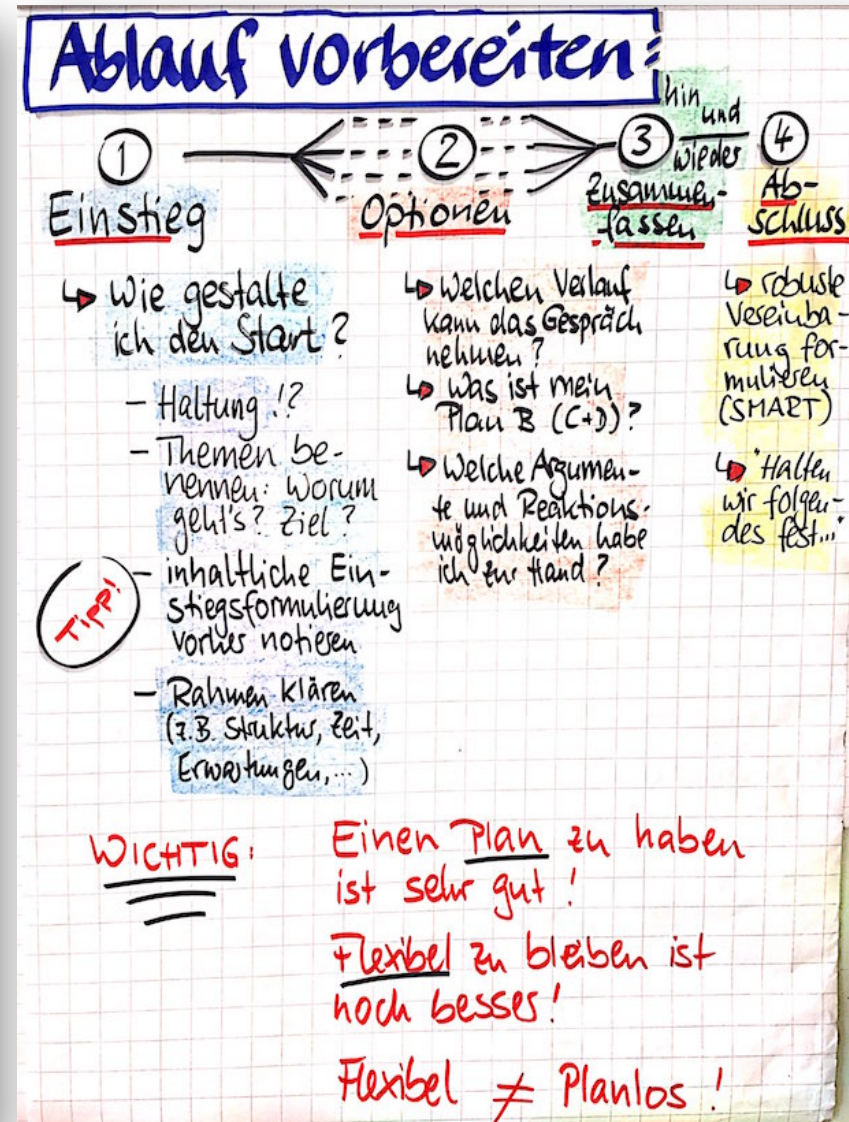 Ablauf vorbereiten:
1
2
3
hin und
wieder
4
Einstieg
Optionen
Zusammen-
fassen
Ab-
schluss
↳ Wie gestalte
ich den Start?
- Haltung!?
- Themen be-
nennen: Worum
geht's? Ziel?
Tipp!
- inhaltliche Ein-
stiegsformulierung
vorher notieren
- Rahmen klären
(z.B. Struktur, Zeit,
Erwartungen,...)
↳ Welchen Verlauf
kann das Gespräch
nehmen?
↳ Was ist mein
Plan B (C+D)?
↳ Welche Argumen-
te und Reaktions-
möglichkeiten habe
ich zur Hand?
↳ robuste
Vereinba-
rung for-
mulieren
(SMART)
↳ "Halten
wir folgen-
des fest..."
WICHTIG:
Einen Plan zu haben
ist sehr gut!
Flexibel zu bleiben ist
noch besser!
Flexibel ≠ Planlos!